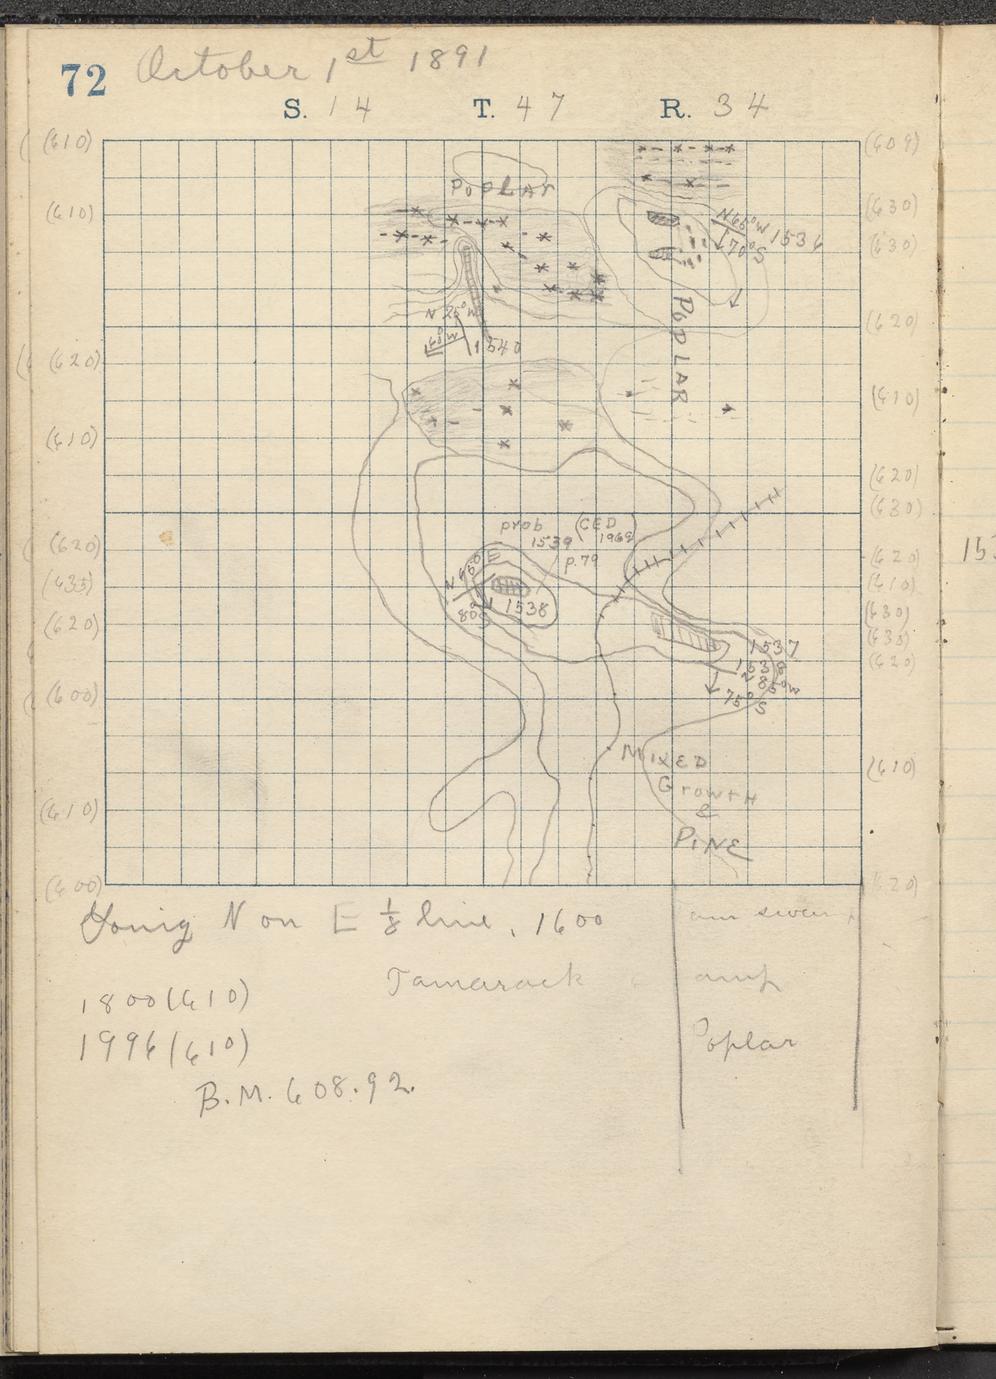 72 October 1st 1891
S. 14 T. 47 R. 34
(610) (609)
POPLAR
(610) (630)
N 65° W 1536
70° S
(630)
N 25° W
60° W 1540
POPLAR
(620)
(620)
(610)
(610)
(620)
(630)
prob (CED 1969)
1539
p. 79
(620) (620)
N 65° E
(635) (610)
1538
80° S
(620) (630)
(635)
1537
1538
(620)
N 85° W
75° S
(600)
MIXED
GROWTH
&
PINE
(610)
(610)
(600) (620)
Going N on E 1/8 line, 1600
Tamarack
amp
1800 (610)
1996 (610)
Poplar
B.M. 608.92.
153